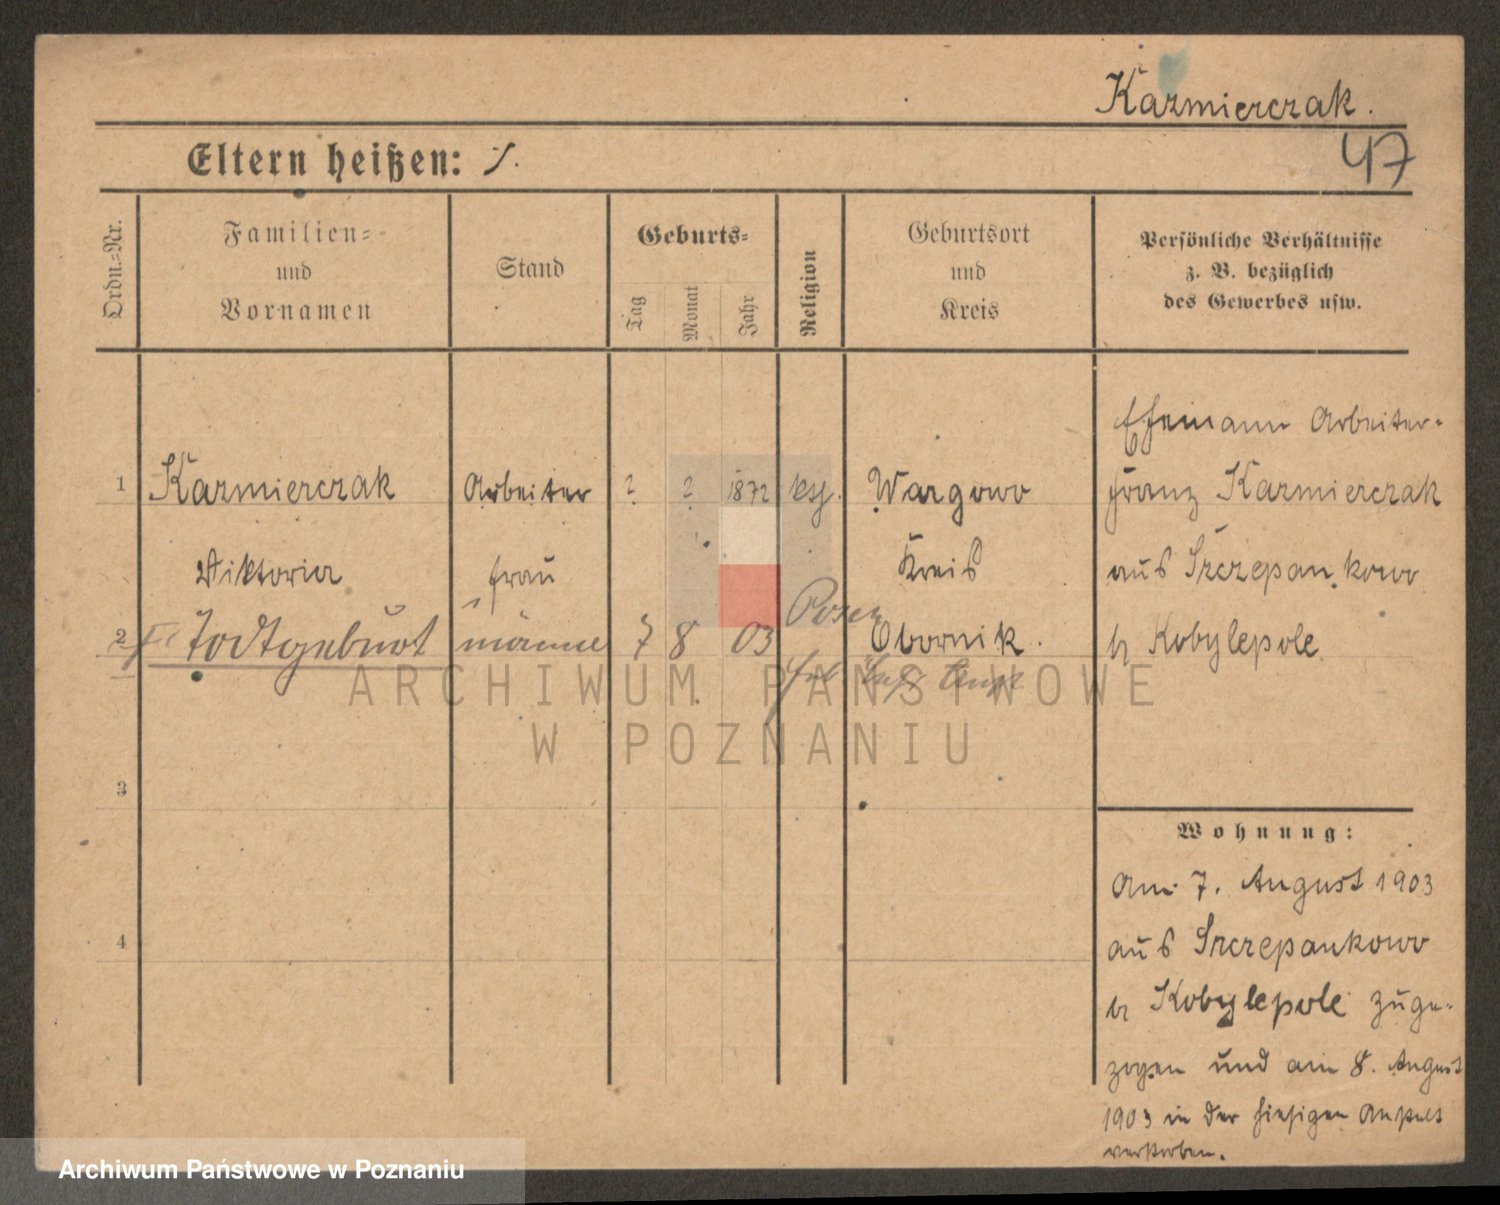 Kazmierczak.
47
Eltern heißen: ∕.
Ordn.-Nr.
Familien-
und
Vornamen
Stand
Geburts-
Tag
Monat
Jahr
Religion
Geburtsort
und
Kreis
Persönliche Verhältnisse
z. B. bezüglich
des Gewerbes usw.
Ehemann Arbeiter
1 Kazmierczak Arbeiter ? ? 1872 Wargowo Franz Kazmierczak
Viktoria frau Kreis aus Szczepankowo
Posen
2 Todtgeburt männl 7 8 03 Obornik. b/ Kobylepole
ARCHIWUM PAŃSTWOWE
W POZNANIU
3
Wohnung:
Am 7. August 1903
4 aus Szczepankowo
b/ Kobylepole zuge-
zogen und am 8. August
1903 in der hiesigen Anstalt
verstorben.
Archiwum Państwowe w Poznaniu